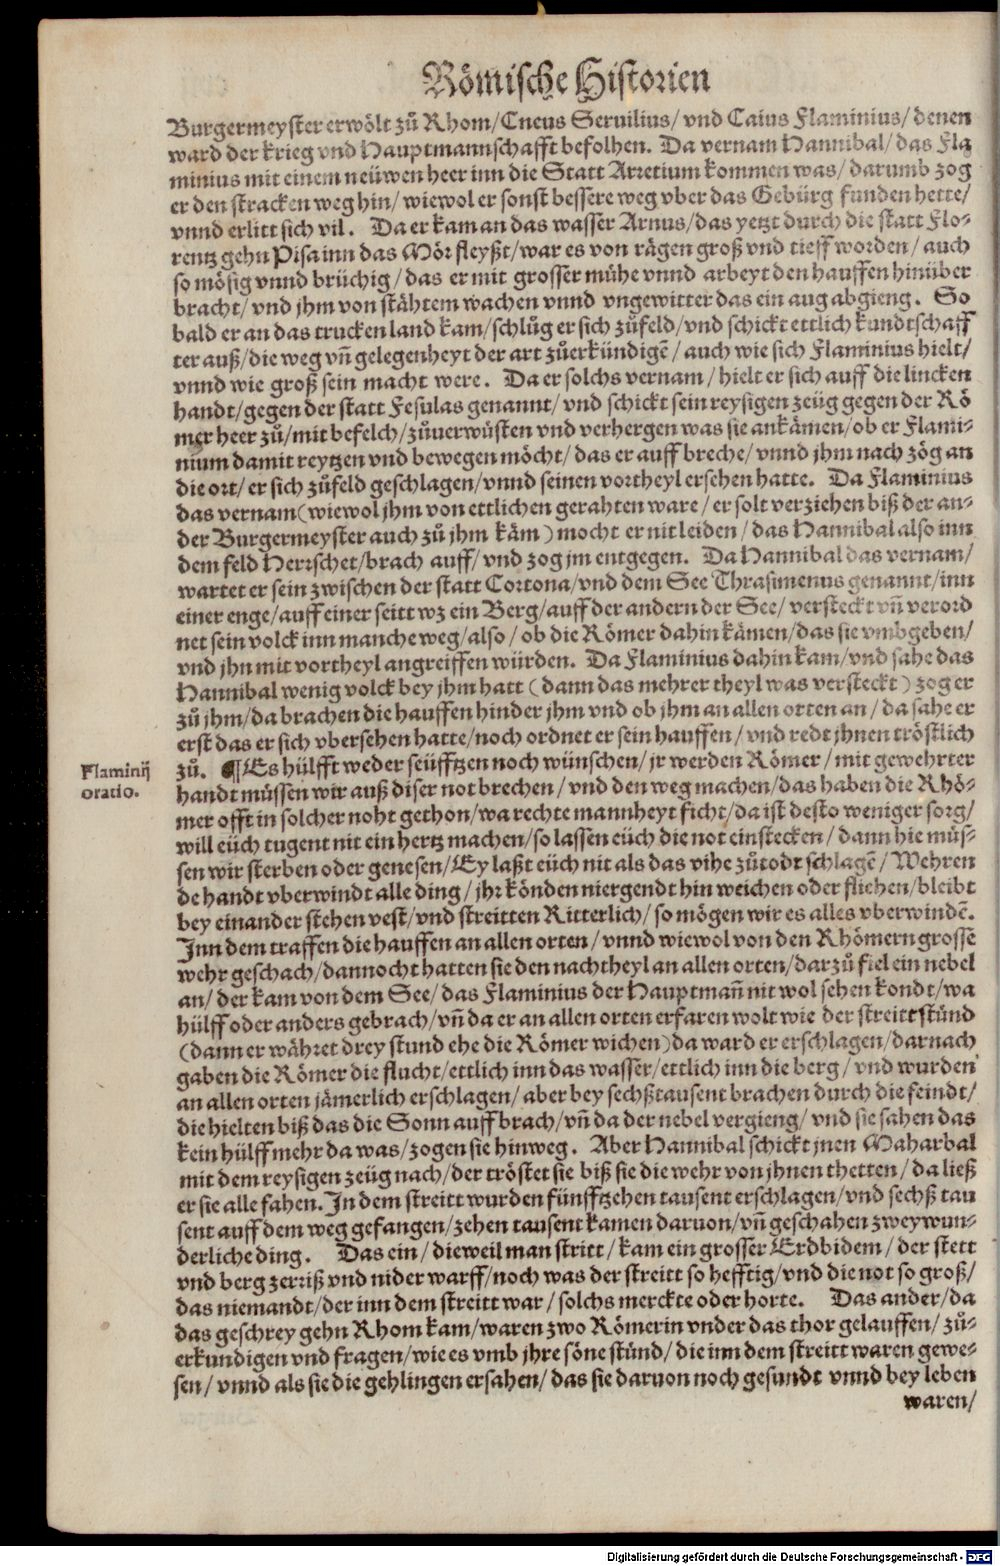 Römische Historien
Burgermeyster erwölt zů Rhom/ Cneus Seruilius/ vnd Caius Flaminius/ denen
ward der krieg vnd Hauptmannschafft befolhen. Da vernam Hannibal/ das Fla
minius mit einem neüwen heer inn die Statt Arretium kommen was/ darumb zog
er den stracken weg hin/ wiewol er sonst bessere weg vber das Gebürg funden hette/
vnnd erlitt sich vil. Da er kam an das wasser Arnus/ das yetzt durch die statt Flo⸗
rentz gehn Pisa inn das Mör fleyßt/ war es von rägen groß vnd tieff worden/ auch
so mösig vnnd brüchig/ das er mit grosser mühe vnnd arbeyt den hauffen hinüber
bracht/ vnd jhm von stähtem wachen vnnd vngewitter das ein aug abgieng. So
bald er an das trucken land kam/ schlůg er sich zůfeld/ vnd schickt ettlich kundtschaff
ter auß/ die weg vñ gelegenheyt der art zůerkündigẽ/ auch wie sich Flaminius hielt/
vnnd wie groß sein macht were. Da er solchs vernam/ hielt er sich auff die lincken
handt/ gegen der statt Fesulas genannt/ vnd schickt sein reysigen zeüg gegen der Rö
mer heer zů/ mit befelch/ zůuerwüsten vnd verhergen was sie ankämen/ ob er Flami⸗
nium damit reytzen vnd bewegen möcht/ das er auff breche/ vnnd jhm nach zög an
die ort/ er sich zůfeld geschlagen/ vnnd seinen vortheyl ersehen hatte. Da Flaminius
das vernam (wiewol jhm von ettlichen gerahten ware/ er solt verziehen biß der an⸗
der Burgermeyster auch zů jhm käm) mocht er nit leiden/ das Hannibal also inn
dem feld Herrschet/ brach auff/ vnd zog jm entgegen. Da Hannibal das vernam/
wartet er sein zwischen der statt Cortona/ vnd dem See Thrasimenus genannt/ inn
einer enge/ auff einer seitt wz ein Berg/ auff der andern der See/ versteckt vñ verord
net sein volck inn manche weg/ also/ ob die Römer dahin kämen/ das sie vmbgeben/
vnd jhn mit vortheyl angreiffen würden. Da Flaminius dahin kam/ vnd sahe das
Hannibal wenig volck bey jhm hatt (dann das mehrer theyl was versteckt) zog er
zů jhm/ da brachen die hauffen hinder jhm vnd ob jhm an allen orten an/ da sahe er
erst das er sich vbersehen hatte/ noch ordnet er sein hauffen/ vnd redt jhnen tröstlich
Flaminij
oratio.
zů. ¶ Es hülfft weder seüfftzen noch wünschen/ jr werden Römer/ mit gewehrter
handt müssen wir auß diser not brechen/ vnd den weg machen/ das haben die Rhö⸗
mer offt in solcher noht gethon/ wa rechte mannheyt ficht/ da ist desto weniger sorg/
will eüch tugent nit ein hertz machen/ so lassen eüch die not einstecken/ dann hie müs⸗
sen wir sterben oder genesen/ Ey laßt eüch nit als das vihe zůtodt schlagẽ/ Wehren
de handt vberwindt alle ding/ jhr könden niergendt hin weichen oder fliehen/ bleibt
bey einander stehen vest/ vnd streitten Ritterlich/ so mögen wir es alles vberwindẽ.
Inn dem traffen die hauffen an allen orten/ vnnd wiewol von den Rhömern grosse
wehr geschach/ dannocht hatten sie den nachtheyl an allen orten/ darzů fiel ein nebel
an/ der kam von dem See/ das Flaminius der Hauptmañ nit wol sehen kondt/ wa
hülff oder anders gebrach/ vñ da er an allen orten erfaren wolt wie der streitt stünd
(dann er währet drey stund ehe die Römer wichen) da ward er erschlagen/ darnach
gaben die Römer die flucht/ ettlich inn das wasser/ ettlich inn die berg/ vnd wurden
an allen orten jämerlich erschlagen/ aber bey sechßtausent brachen durch die feindt/
die hielten biß das die Sonn auff brach/ vñ da der nebel vergieng/ vnd sie sahen das
kein hülff mehr da was/ zogen sie hinweg. Aber Hannibal schickt jnen Maharbal
mit dem reysigen zeüg nach/ der tröstet sie biß sie die wehr von jhnen thetten/ da ließ
er sie alle fahen. In dem streitt wurden fünfftzehen tausent erschlagen/ vnd sechß tau
sent auff dem weg gefangen/ zehen tausent kamen daruon/ vñ geschahen zwey wun⸗
derliche ding. Das ein/ dieweil man stritt/ kam ein grosser Erdbidem/ der stett
vnd berg zerriß vnd nider warff/ noch was der streitt so hefftig/ vnd die not so groß/
das niemandt/ der inn dem streitt war/ solchs merckte oder horte. Das ander/ da
das geschrey gehn Rhom kam/ waren zwo Römerin vnder das thor gelauffen/ zů⸗
erkundigen vnd fragen/ wie es vmb jhre söne stünd/ die inn dem streitt waren gewe⸗
sen/ vnnd als sie die gehlingen ersahen/ das sie daruon noch gesundt vnnd bey leben
waren/
Digitalisierung gefördert durch die Deutsche Forschungsgemeinschaft - DFG